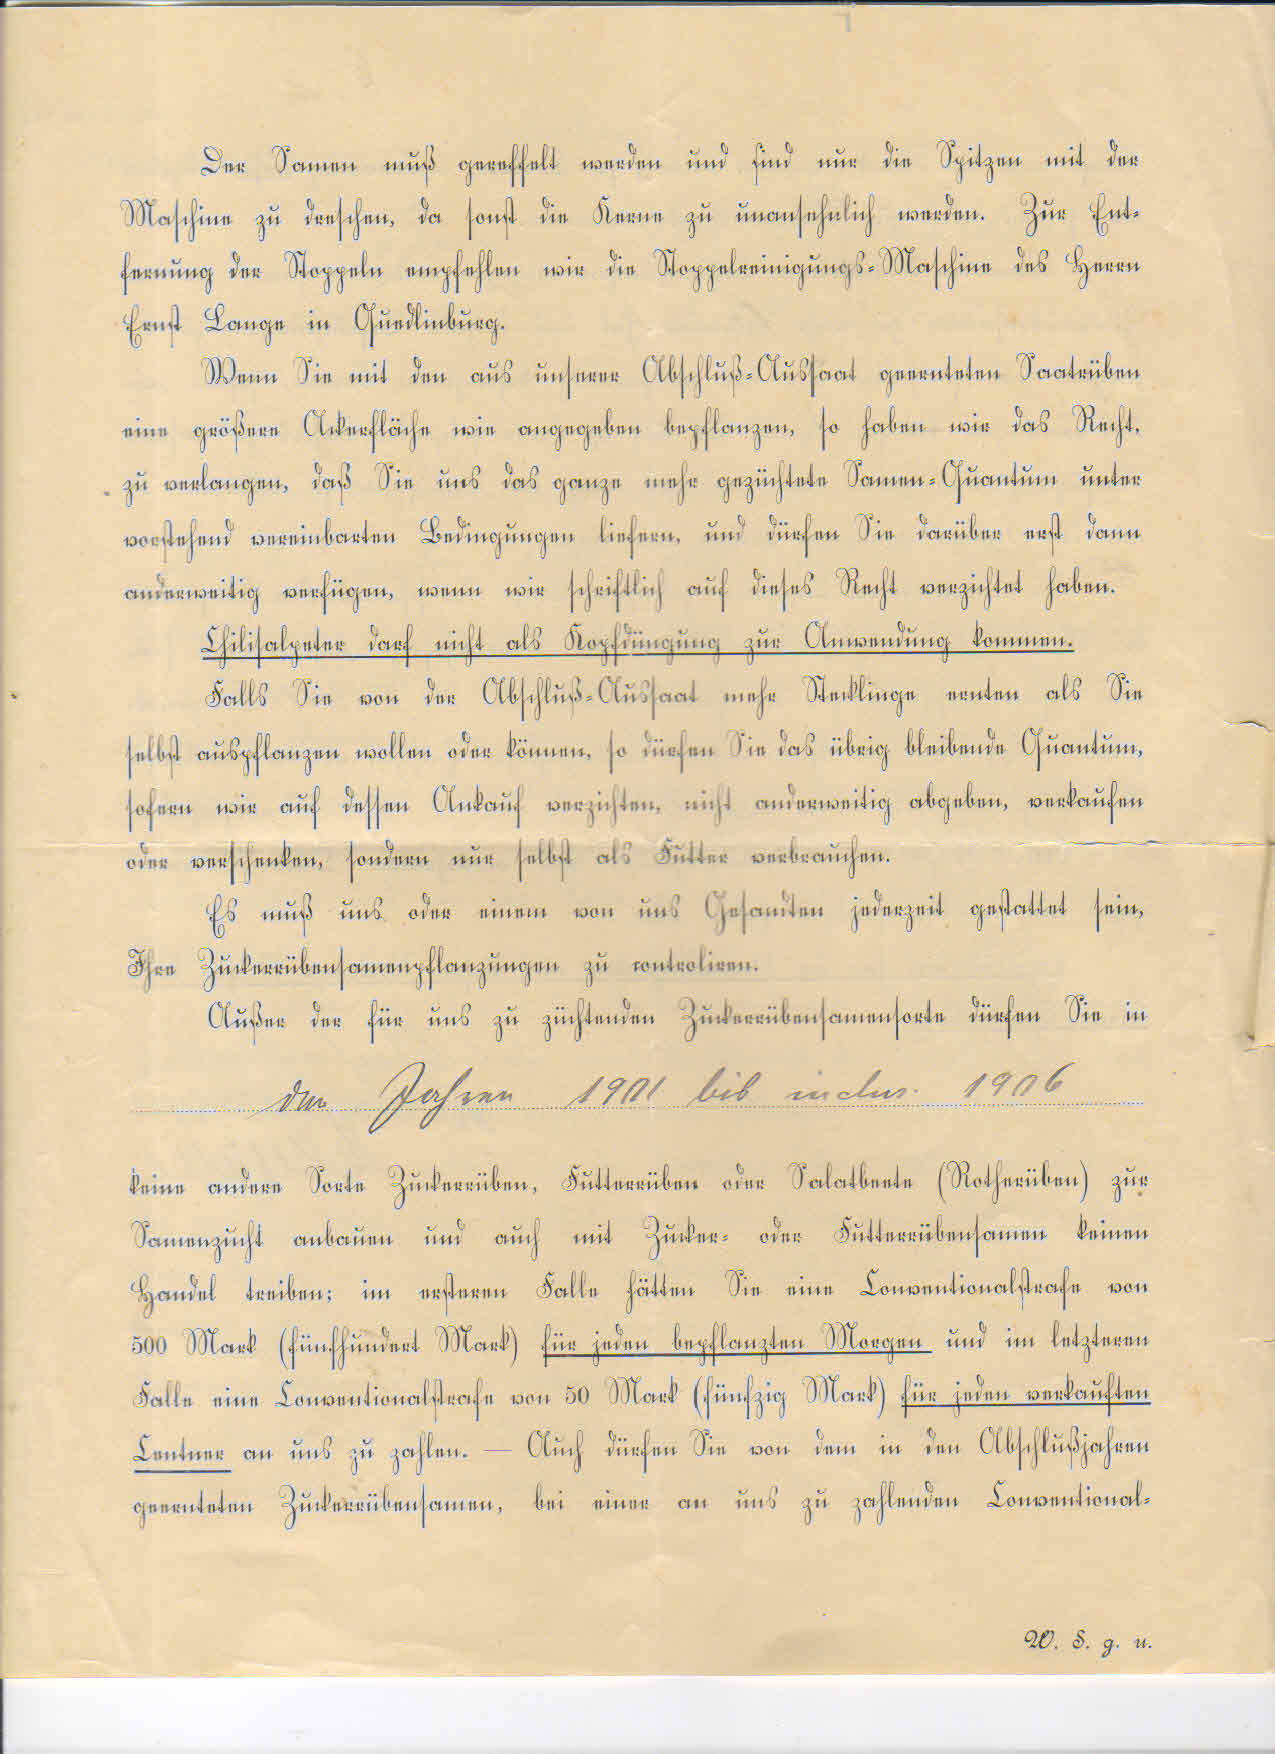 Der Samen muß gereffelt werden und sind nur die Spitzen mit der
Maschine zu dreschen, da sonst die Kerne zu unansehnlich werden. Zur Ent-
fernung der Stoppeln empfehlen wir die Stoppelreinigungs-Maschine des Herrn
Ernst Lange in Quedlinburg.
Wenn Sie mit den aus unserer Abschluß-Aussaat geernteten Saatrüben
eine größere Ackerfläche wie angegeben bepflanzen, so haben wir das Recht,
zu verlangen, daß Sie uns das ganze mehr gezüchtete Samen-Quantum unter
vorstehend vereinbarten Bedingungen liefern, und dürfen Sie darüber erst dann
anderweitig verfügen, wenn wir schriftlich auf dieses Recht verzichtet haben.
Chilisalpeter darf nicht als Kopfdüngung zur Anwendung kommen.
Falls Sie von der Abschluß-Aussaat mehr Stecklinge ernten als Sie
selbst auspflanzen wollen oder können, so dürfen Sie das übrig bleibende Quantum,
sofern wir auf dessen Ankauf verzichten, nicht anderweitig abgeben, verkaufen
oder verschenken, sondern nur selbst als Futter verbrauchen.
Es muß uns oder einem von uns Gesandten jederzeit gestattet sein,
Ihre Zuckerrübensamenpflanzungen zu controliren.
Außer der für uns zu züchtenden Zuckerrübensamensorte dürfen Sie in
den Jahren 1901 bis inclus. 1906
keine andere Sorte Zuckerrüben, Futterrüben oder Salatbeete (Rotherüben) zur
Samenzucht anbauen und auch mit Zucker- oder Futterrübensamen keinen
Handel treiben; im ersteren Falle hätten Sie eine Conventionalstrafe von
500 Mark (fünfhundert Mark) für jeden bepflanzten Morgen und im letzteren
Falle eine Conventionalstrafe von 50 Mark (fünfzig Mark) für jeden verkauften
Centner an uns zu zahlen. — Auch dürfen Sie von dem in den Abschlußjahren
geernteten Zuckerrübensamen, bei einer an uns zu zahlenden Conventional-
W. S. g. u.